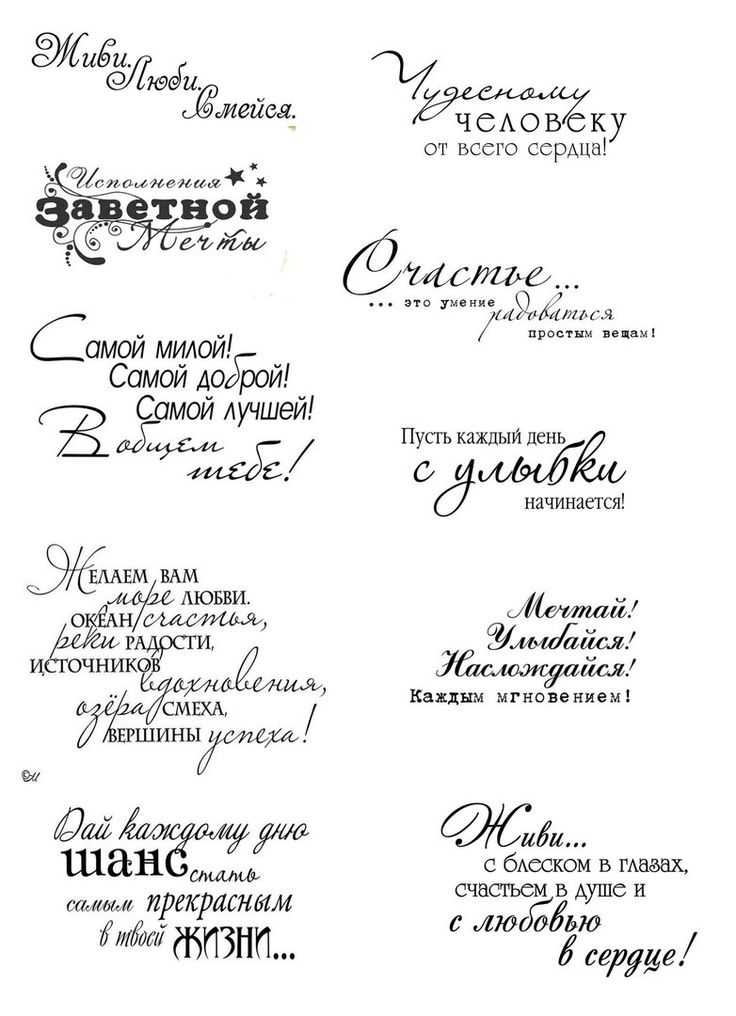 Живи.
Люби.
Смейся.
Исполнения
Заветной
Мечты
Самой милой!
Самой доброй!
Самой лучшей!
В общем
тебе!
Желаем вам
море любви.
океан счастья,
реки радости,
источников
вдохновения,
озёра смеха,
вершины успеха!
©И
Дай каждому дню
шанс стать
самым прекрасным
в твоей жизни...
Чудесному
человеку
от всего сердца!
Счастье...
... это умение
радоваться
простым вещам!
Пусть каждый день
с улыбки
начинается!
Мечтай!
Улыбайся!
Наслождайся!
Каждым мгновением!
Живи...
с блеском в глазах,
счастьем в душе и
с любовью
в сердце!